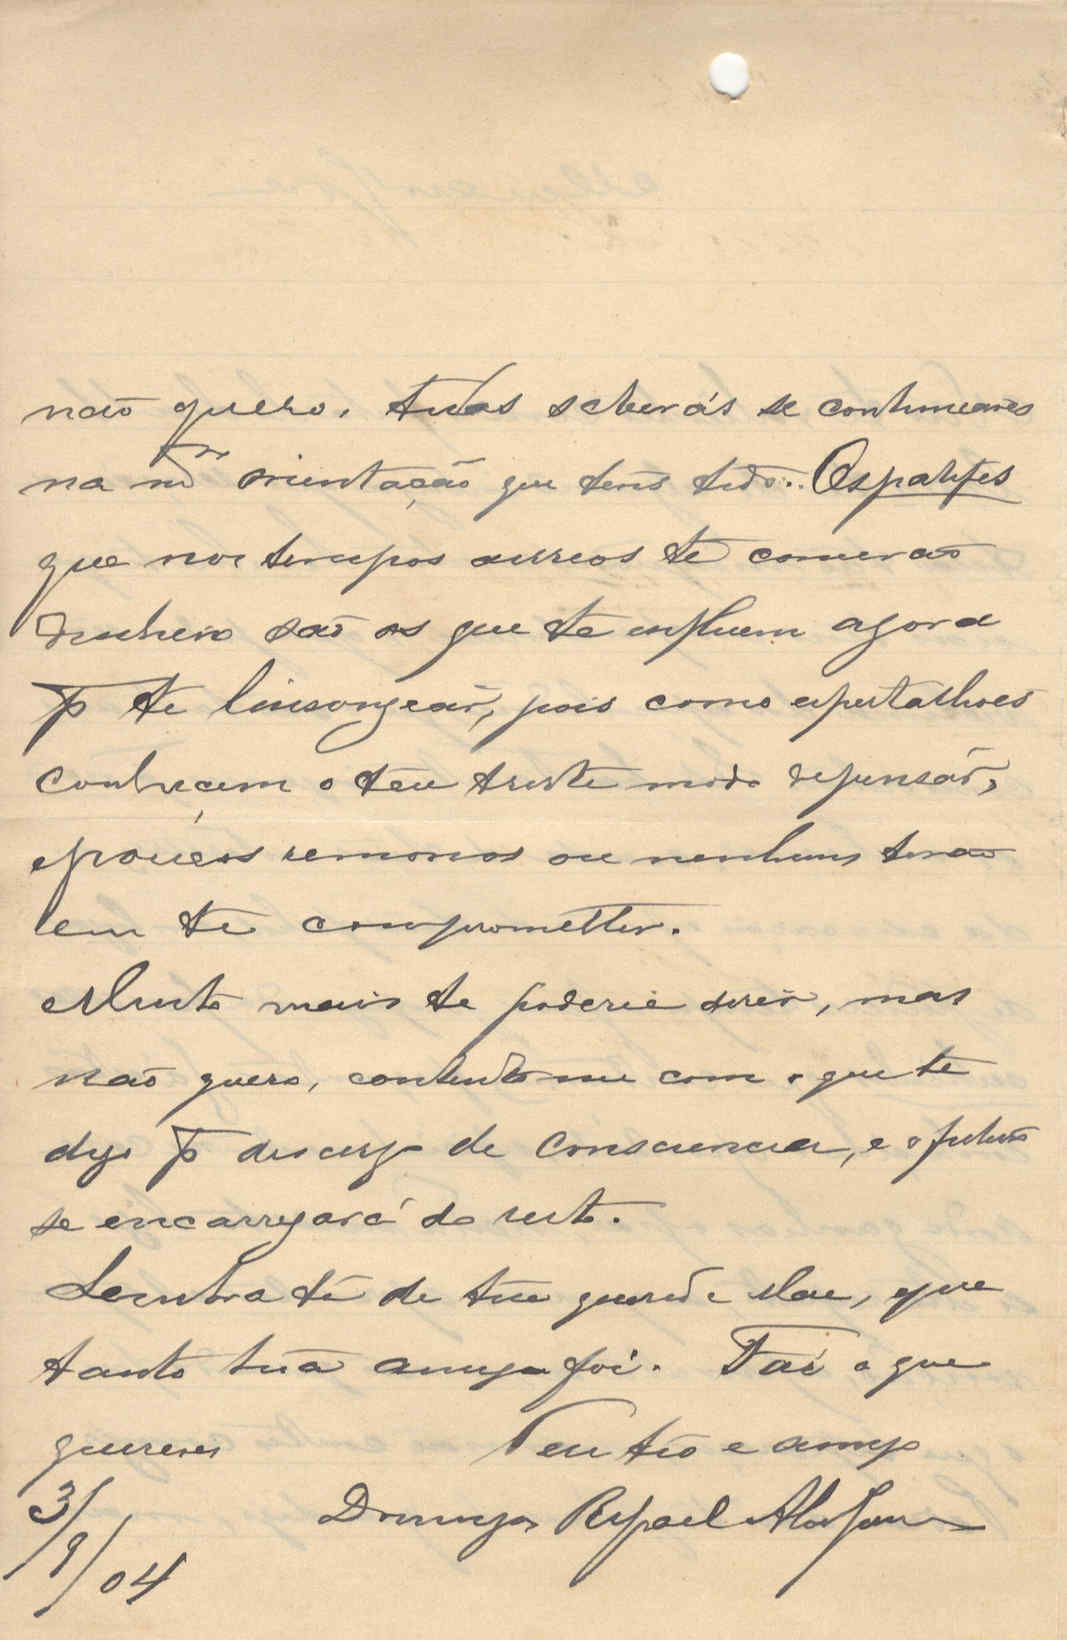 não quero. tudos saberás se continuares
na m orientação que tens tido... Os patifes
que nos tempos aureos te comerão
dinheiro são os que te influem agora
p te linsongear, pois como espertalhoes
conhecem o teu triste modo de pensar,
e poucos remorsos ou nenhuns terão
em te comprometter.
Muito mais te poderia dizer, mas
não quero, contento me com o que te
digo p descargo de consciencia, e o futuro
se encarregará do resto.
Lembra te de tua querida Mae, que
tanto tua amiga foi. Faz o que
quizeres Teu tio e amigo
3/9/04 Domingos Rafael